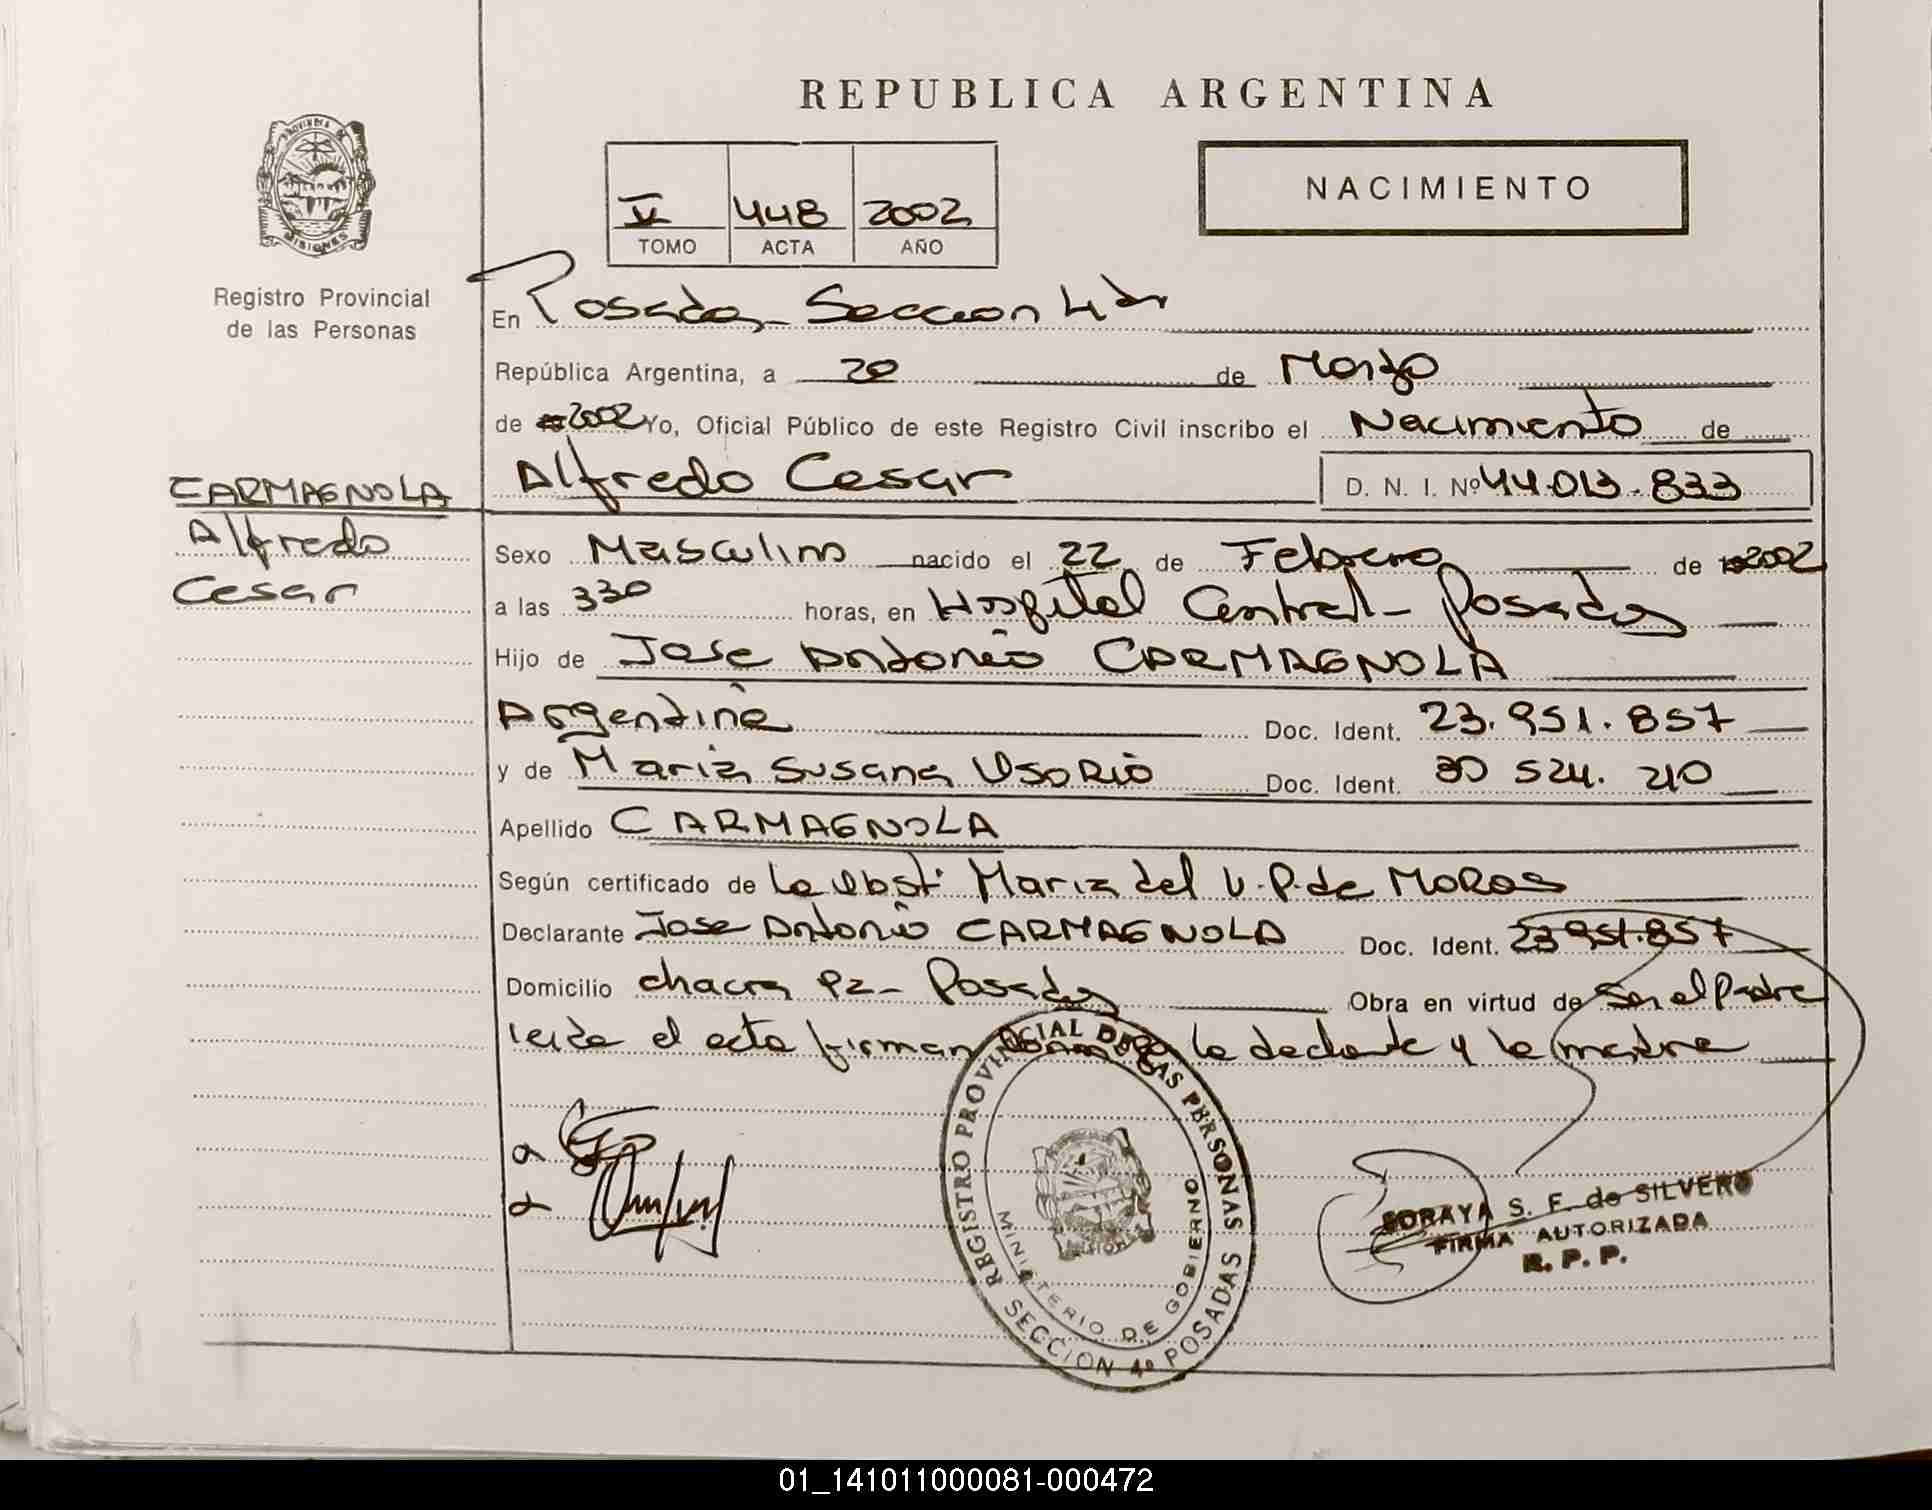 REPUBLICA ARGENTINA
PROVINCIA DE
MISIONES
Registro Provincial
de las Personas
V 448 2002
TOMO ACTA AÑO
NACIMIENTO
En Posadas - Seccion 4ta
República Argentina, a 20 de Marzo
de 2002 Yo, Oficial Público de este Registro Civil inscribo el Nacimiento de
Alfredo Cesar D. N. I. Nº 44.013.833
CARMAGNOLA
Alfredo
Cesar
Sexo Masculino nacido el 22 de Febrero de 2002
a las 330 horas, en Hospital Central - Posadas
Hijo de Jose Antonio CARMAGNOLA
Argentina Doc. Ident. 23.951.857
y de Maria Susana OsoRio Doc. Ident. 30 524. 210
Apellido CARMAGNOLA
Según certificado de la Obst. Maria del V. P. de MoRas
Declarante Jose Antonio CARMAGNOLA Doc. Ident. 23 951.857
Domicilio chacra 92 - Posadas Obra en virtud de Ser el Padre
leida el acta firman la declarante y la madre
REGISTRO PROVINCIAL DE LAS PERSONAS
SECCION 4º POSADAS
MINISTERIO DE GOBIERNO
SORAYA S. F. de SILVERO
FIRMA AUTORIZADA
R. P. P.
01_141011000081-000472